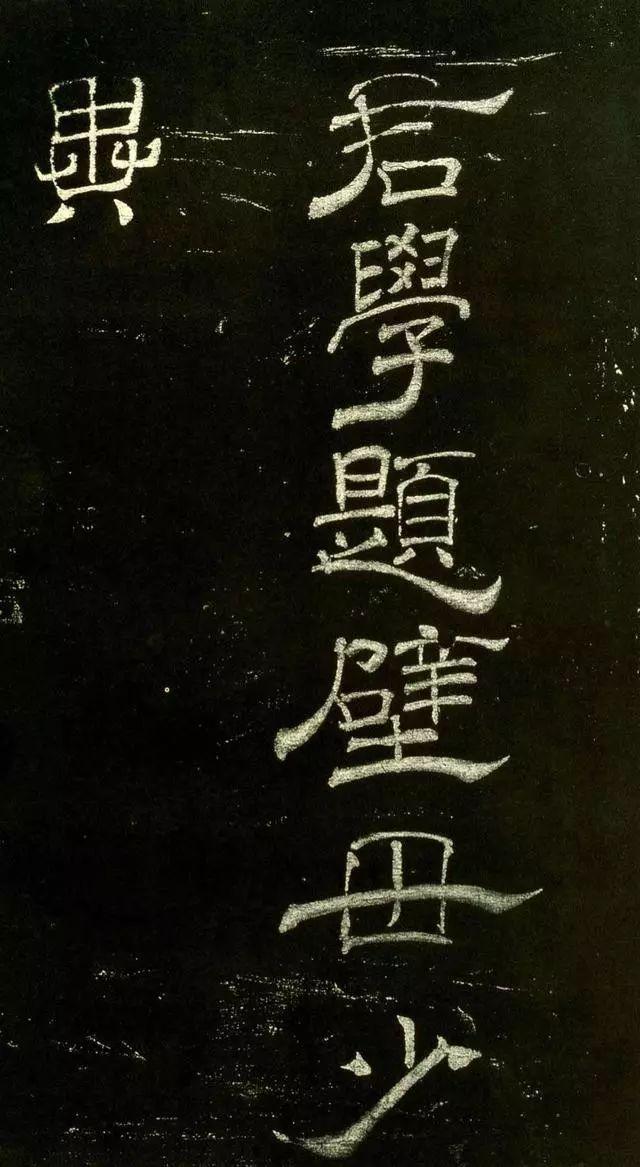 君學題壁毋少